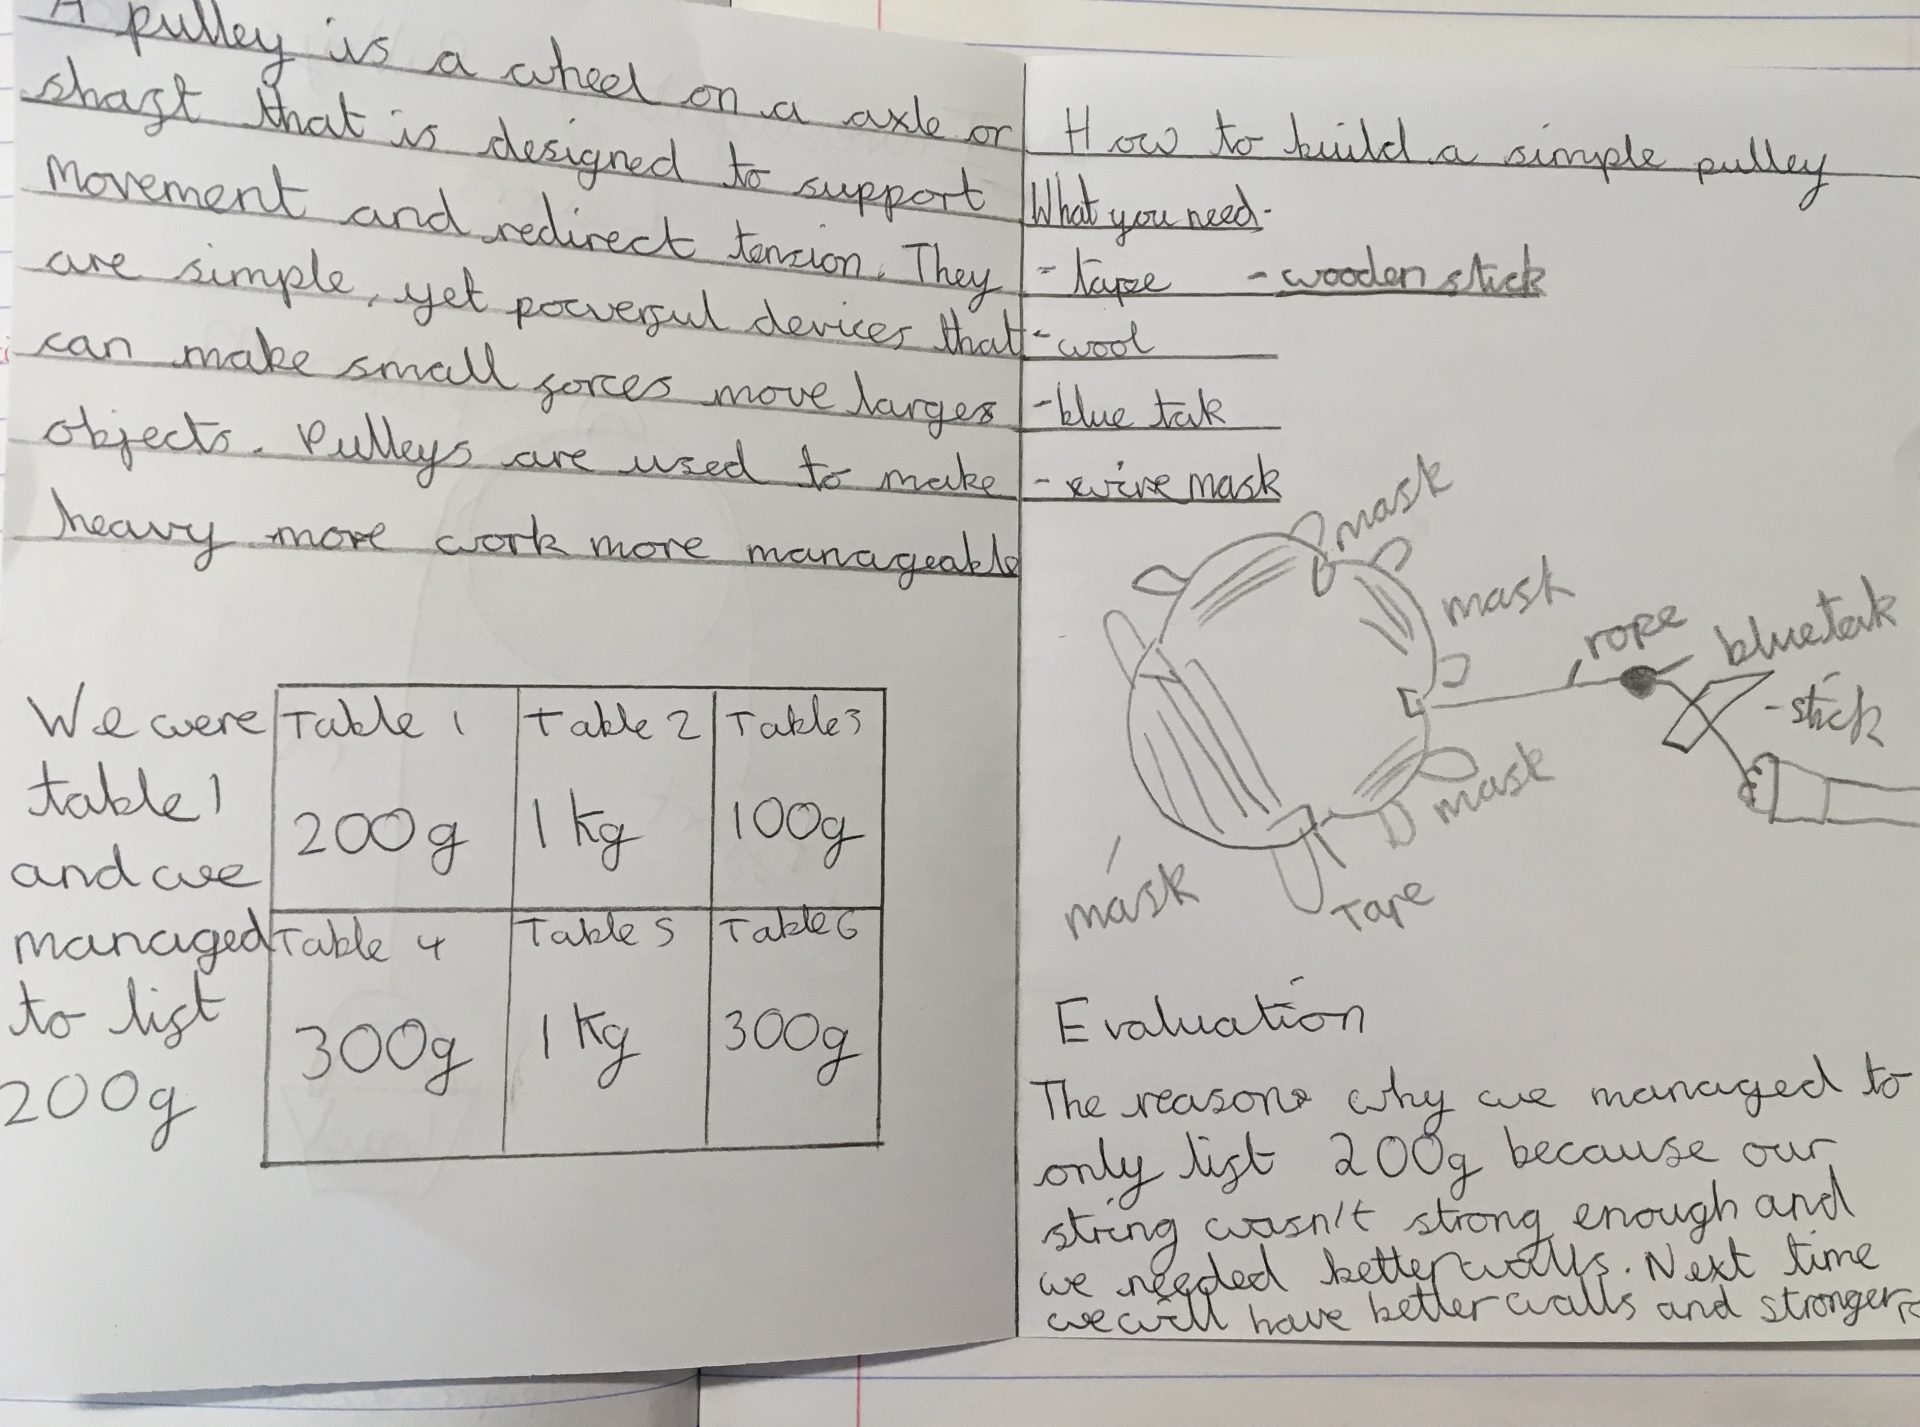 A pulley is a wheel on a axle or
shaft that is designed to support
movement and redirect tension. They
are simple, yet powerful devices that
can make small forces move larges
objects. Pulleys are used to make
heavy more work more manageable
We were
table 1
and we
managed
to lift
200g
Table 1 Table 2 Table 3
200g 1 kg 100g
Table 4 Table 5 Table 6
300g 1 kg 300g
How to build a simple pulley
What you need-
- tape - wooden stick
- wool
- blue tak
- wire mask
mask
mask
rope
blue tak
- stick
mask
mask
Tape
Evaluation
The reason why we managed to
only lift 200g because our
string wasn't strong enough and
we needed better walls. Next time
we will have better walls and stronger